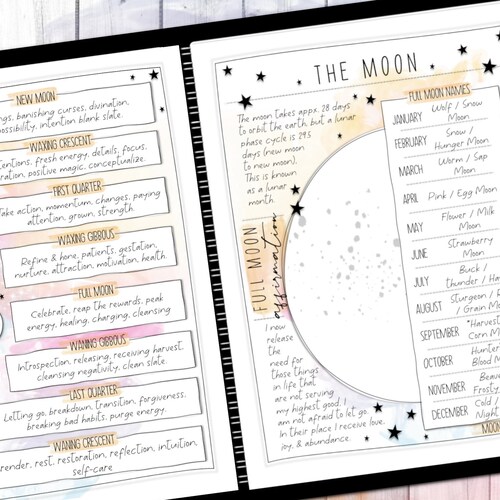 NEW MOON
ngs, banishing curses, divination,
ossibility, intention blank slate.
WAXING CRESCENT
tentions, fresh energy, details, focus,
ration, positive magic, conceptualize.
FIRST QUARTER
Take action, momentum, changes, paying
attention, grown, strength.
WAXING GIBBOUS
Refine & hone, patients, gestation,
nurture, attraction, motivation, health.
FULL MOON
Celebrate, reap the rewards, peak
energy, healing, charging, cleansing
WANING GIBBOUS
Introspection, releasing, receiving harvest
cleansing negativity, clean slate.
LAST QUARTER
Letting go, breakdown, transition, forgiveness,
breaking bad habits, purge energy.
WANING CRESCENT
render, rest, restoration, reflection, intuition,
self-care
THE MOON
The moon takes appx. 28 days
to orbit the earth, but a lunar
phase cycle is 29.5
days (new moon
to new moon).
This is known
as a lunar
month.
FULL MOON
affirmation
I now
release
the
need for
those things
in life that
are not serving
my highest good. I
am not afraid to let go.
In their place I receive love,
joy, & abundance.
FULL MOON NAMES
JANUARY Wolf / Snow
Moon
FEBRUARY Snow /
Hunger Moon
MARCH Worm / Sap
Moon
APRIL Pink / Egg Moon
MAY Flower / Milk
Moon
JUNE Strawberry
Moon
JULY Buck /
thunder / Ha
AUGUST Sturgeon / R
/ Grain Mo
SEPTEMBER *Harvest
Corn M
OCTOBER Hunter
Blood M
NOVEMBER Beave
Frost
DECEMBER Cold /
Night
MOON